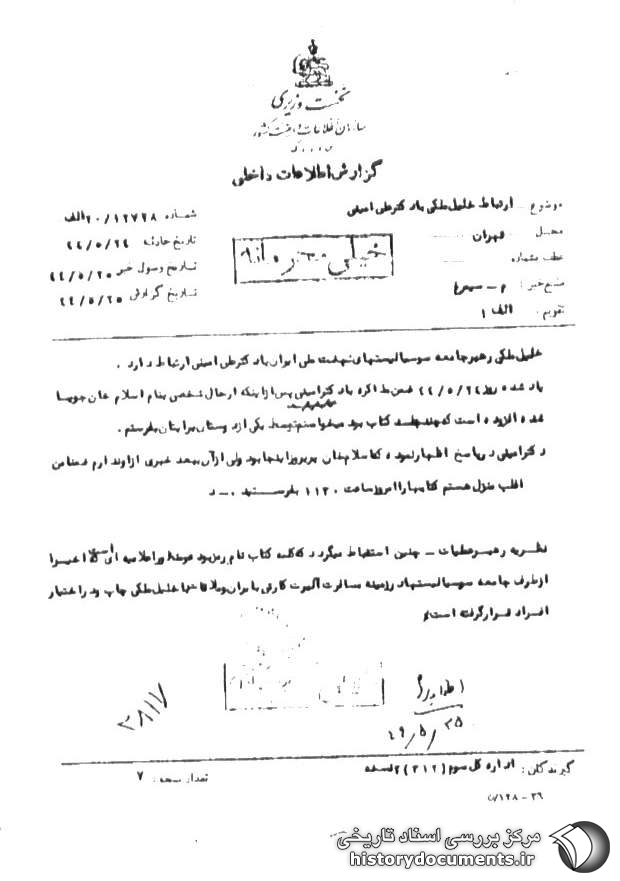 نخست وزیری
سازمان اطلاعات و امنیت کشور
س.ا.و.ا.ک
گزارش اطلاعات داخلی
موضوع : ارتباط خلیل ملکی با دکتر علی امینی
محل : تهران
عطف بشماره
منبع خبر : م - سیمرغ
تقویم : الف ۱
شماره ۲۰/۱۲۷۲۸ الف
تاریخ حادثه ۴۴/۵/۲۴
تاریخ وصول خبر ۴۴/۵/۲۵
تاریخ گزارش ۴۴/۵/۲۵
خیلی محرمانه
خلیل ملکی رهبر جامعه سوسیالیستهای نهضت ملی ایران با دکتر علی امینی ارتباط دارد .
یاد شده روز ۴۴/۵/۲۴ ضمن مذاکره با دکتر امینی پس از اینکه از حال شخصی بنام اسلام خان جویا
شده افزوده است که چند جلد کتاب بود میخواستم توسط یکی از دوستان برایتان بفرستم .
دکتر امینی در پاسخ اظهار نموده که اسلام خان پریروز اینجا بود ولی از آن ببعد خبری از او ندارم ضمنا من
اغلب منزل هستم کتابها را امروز ساعت ۱۱۳۰ بفرستید . - د
نظریه رهبر عملیات - چنین استنباط میگردد که کلمه کتاب نام رمز بوده و منظور اعلامیه ای است که اخیرا
از طرف جامعه سوسیالیستها در زمینه مسافرت آلبرت کارتی بایران و ملاقاتها خلیل ملکی چاپ و در اختیار
افراد قرار گرفته است
۳۸۱۷
۲۵/۵/۴۹
گیرندگان : اداره کل سوم (۳۱۲) ۲ نسخه
تعداد نسخه : ۷
۳۶ - ۱۲۸
مرکز بررسی اسناد تاریخی
historydocuments.ir